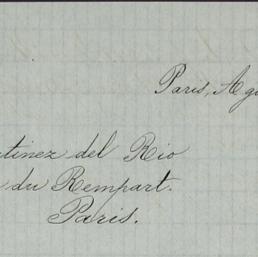 Paris, Ag
tinez del Rio
du Rempart.
Paris.